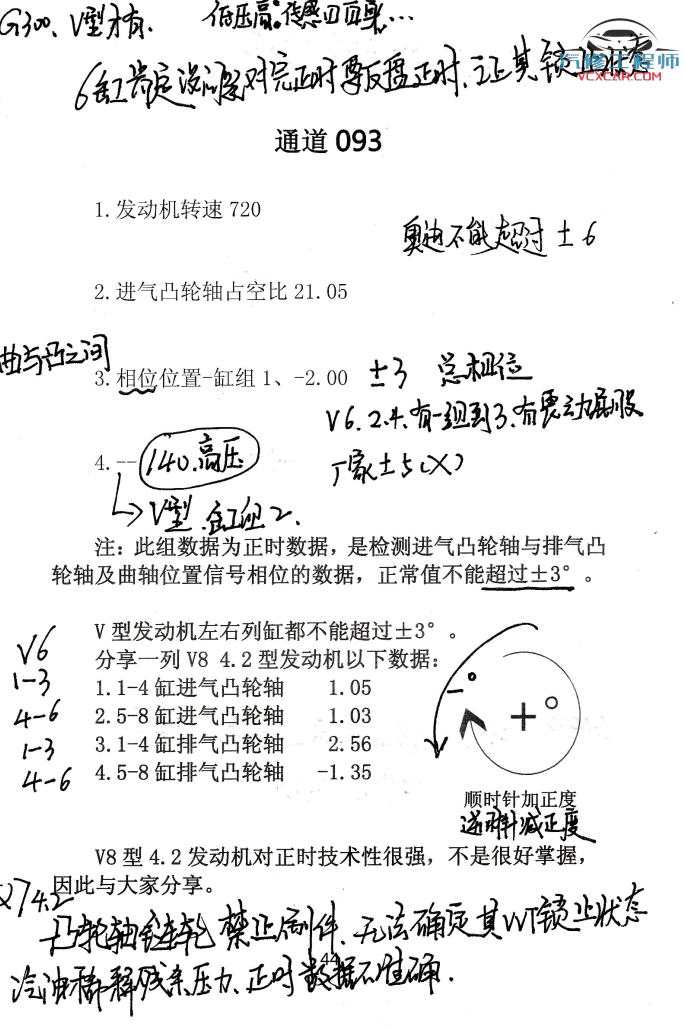 G300、V型才有.
低压高。传感四百里…
汽修工程师
VCXCAR.COM
6缸肯定没问题对完正时要反盘正时、让其锁止状态
通道 093
1.发动机转速 720
奥迪不能超过 ±6
2.进气凸轮轴占空比 21.05
曲与凸之间
3.相位位置-缸组 1、-2.00
±3 总相位
V6.2.4.有一组到3.有震动
4.--
140.高压
厂家±5(X)
V型.缸组2.
注：此组数据为正时数据，是检测进气凸轮轴与排气凸
轮轴及曲轴位置信号相位的数据，正常值不能超过±3°。
V 型发动机左右列缸都不能超过±3°。
分享一列 V8 4.2 型发动机以下数据：
V6
1-3
1.1-4 缸进气凸轮轴 1.05
4-6
2.5-8 缸进气凸轮轴 1.03
1-3
3.1-4 缸排气凸轮轴 2.56
4-6
4.5-8 缸排气凸轮轴 -1.35
-°
+°
顺时针加正度
逆时针减正度
V8 型 4.2 发动机对正时技术性很强，不是很好掌握，
因此与大家分享。
Q7 4.2
凸轮轴链轮 禁止副件.无法确定其VVT锁止状态
44
汽油稀释残余压力、正时数据不准确.